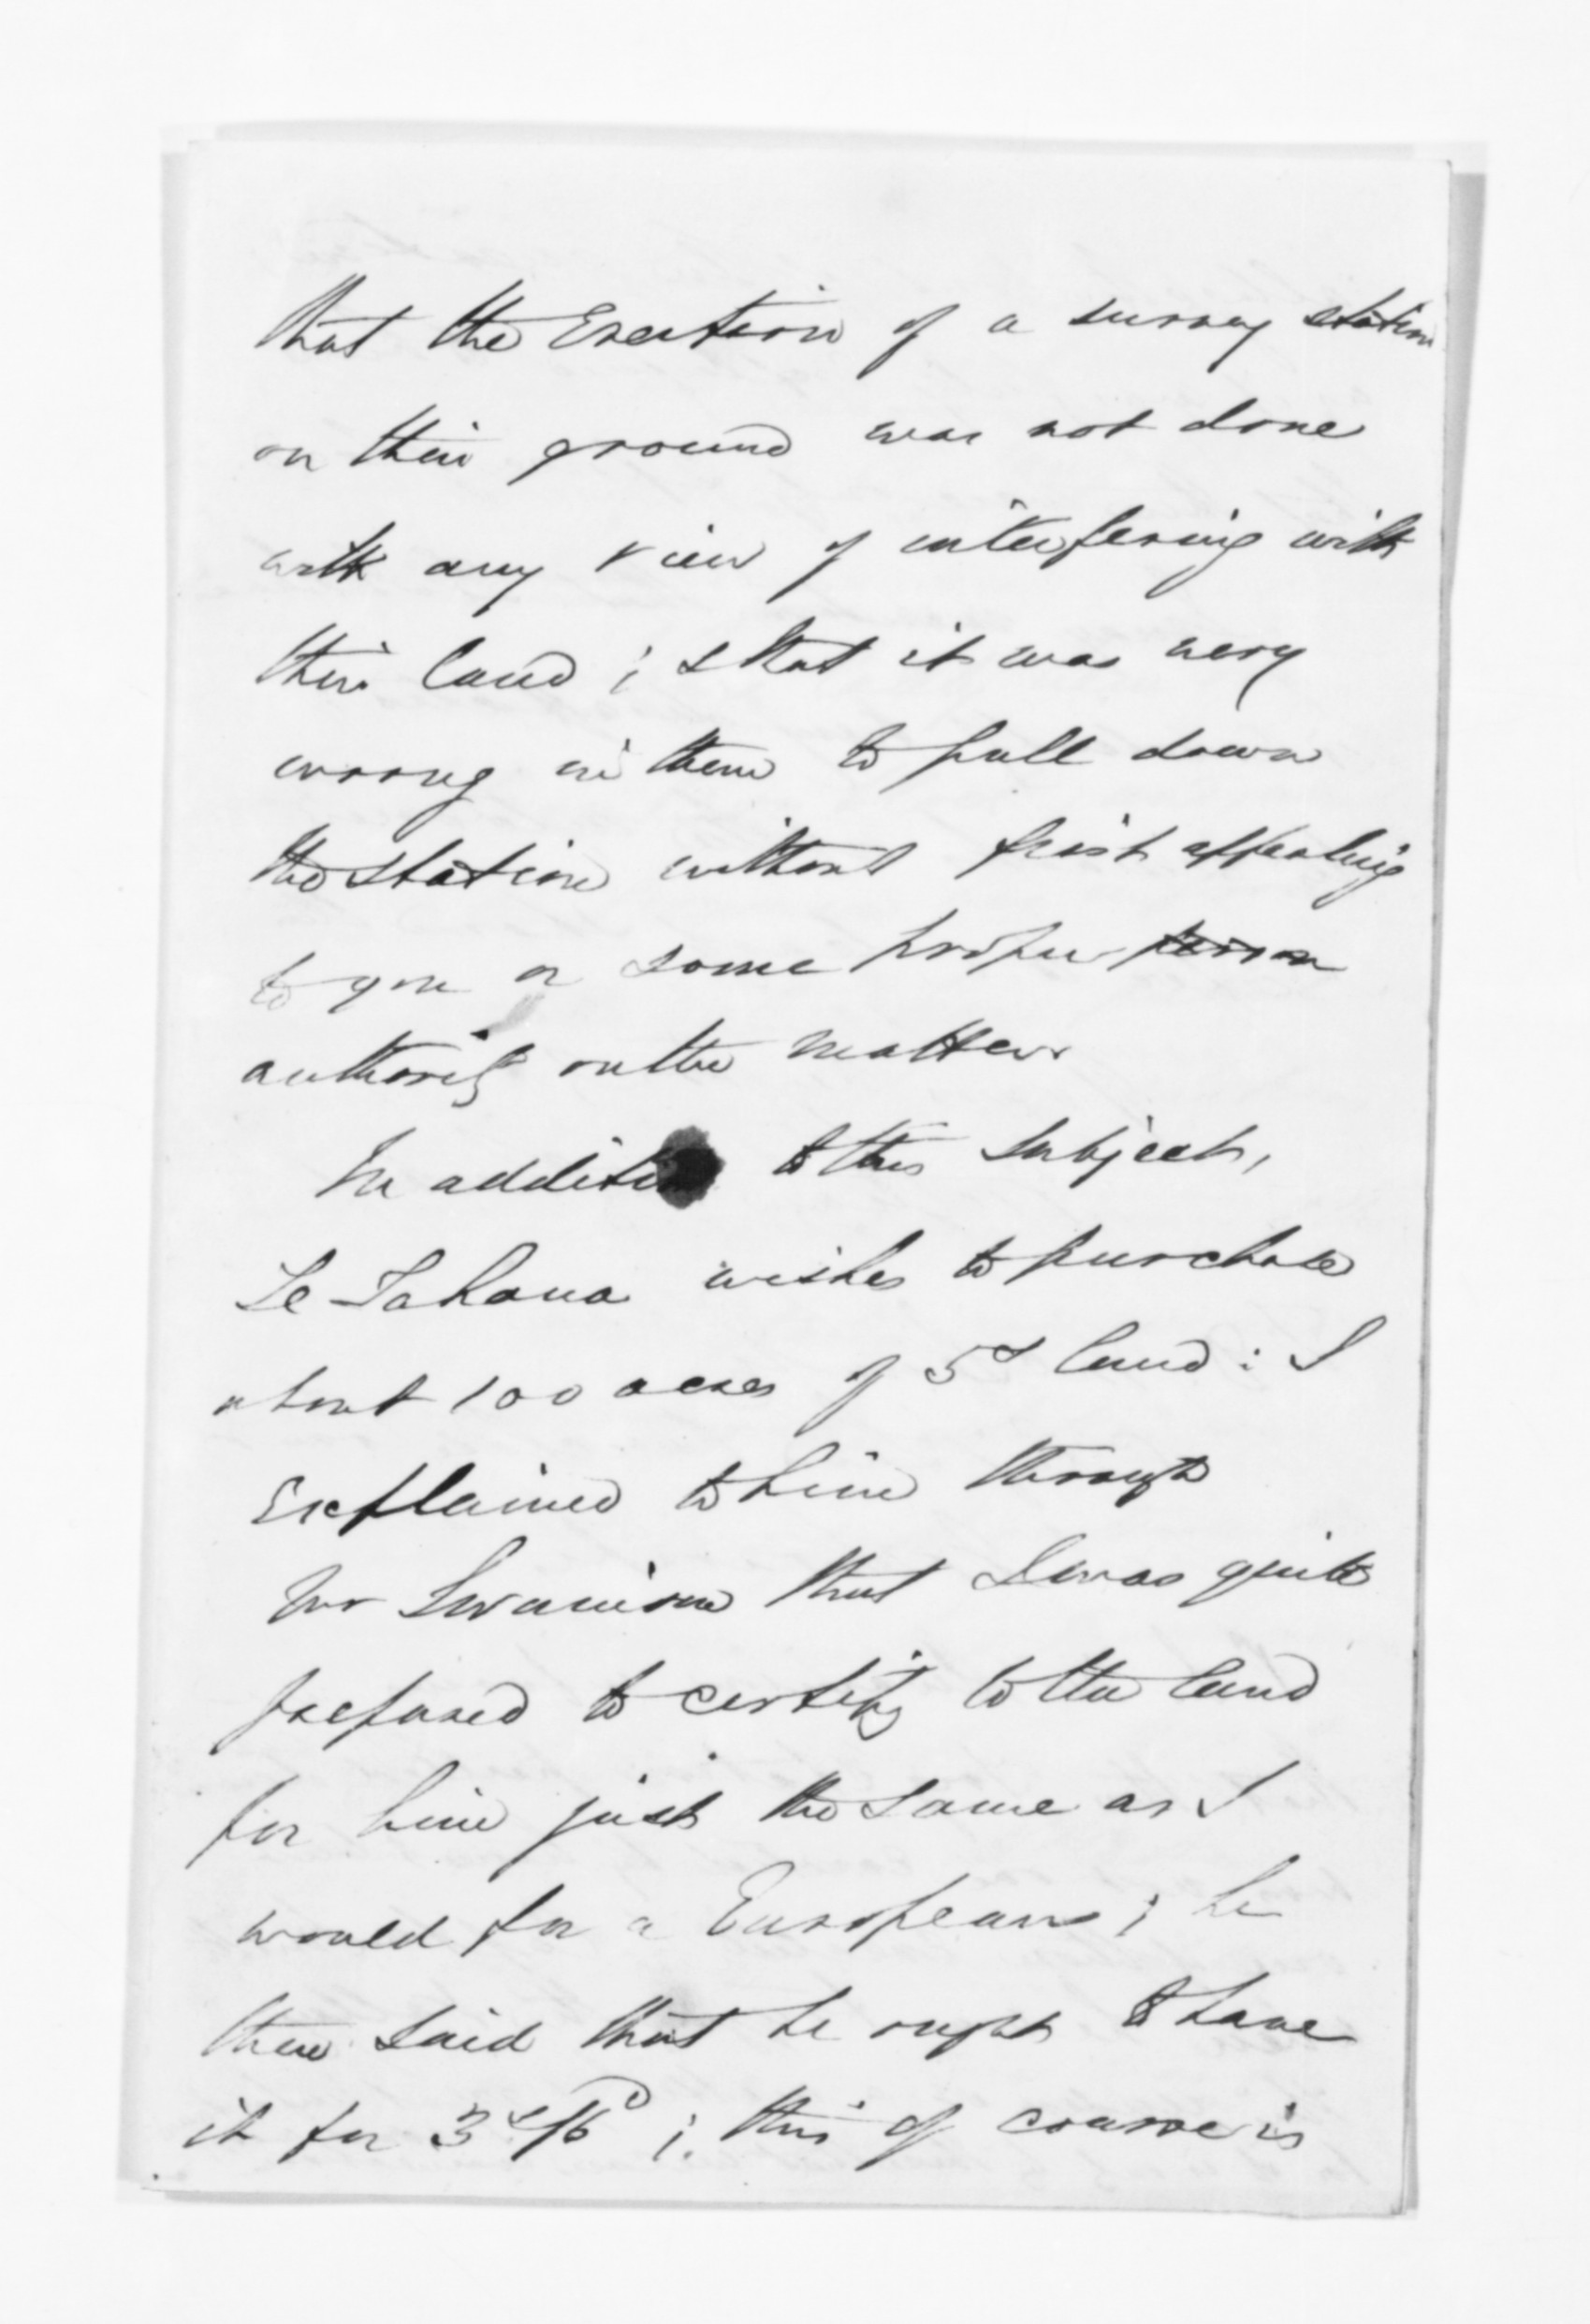 that the Erection of a survey station
on their ground was not done
with any view of interfering with
their land ; & that it was very
wrong in them to pull down
the station without first appealing
to you or some proper person
authority on the matter.
In addition to this subject,
Te Tahana wishes to purchase
about 100 acres of 5s land : I
Explained to him through
Mr Swainson that I was quite
prepared to certify to the land
for him just the same as I
would for a European ; he
then said that he ought to have
it for 3s/6d ; this of course is